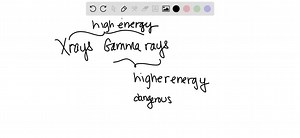 high energy
Xrays Gamma rays
higher energy
dangerous